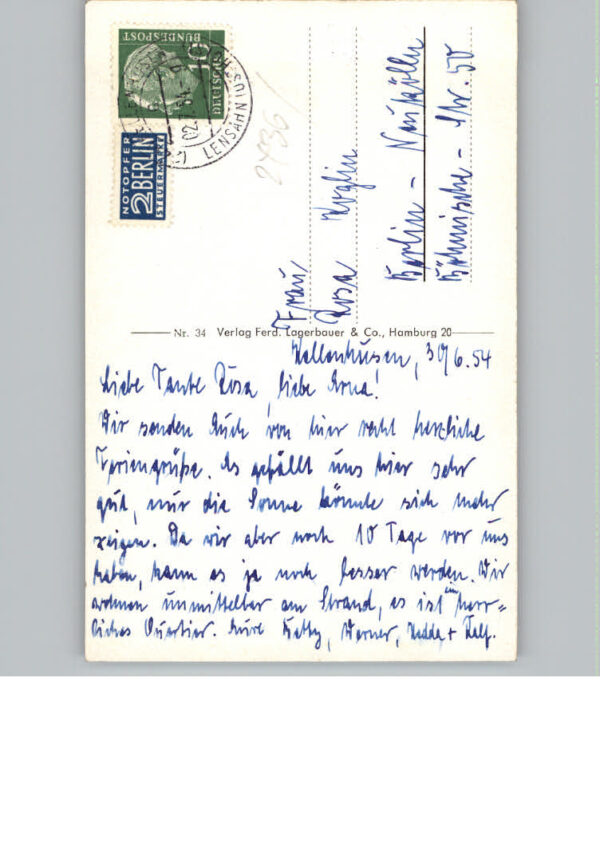 DEUTSCHE
BUNDESPOST
10
LENSAHN (HOLST)
NOTOPFER
2 BERLIN
STEUERMARKE
2436/
Frau
Rosa Koglin
Berlin - Neukölln
Böhmische - Str. 50
Nr. 34 Verlag Ferd. Lagerbauer & Co., Hamburg 20
30/6.54
Liebe Tante Rosa, liebe Erna!
Wir senden Euch von hier recht herzliche
Feriengrüße. Es gefällt uns hier sehr
gut, nur die Sonne könnte sich mehr
zeigen. Da wir aber noch 10 Tage vor uns
haben, kann es ja noch besser werden. Wir
wohnen unmittelbar am Strand, es ist ein herr-
liches Quartier. Eure Werner, Hedda + Ralf.